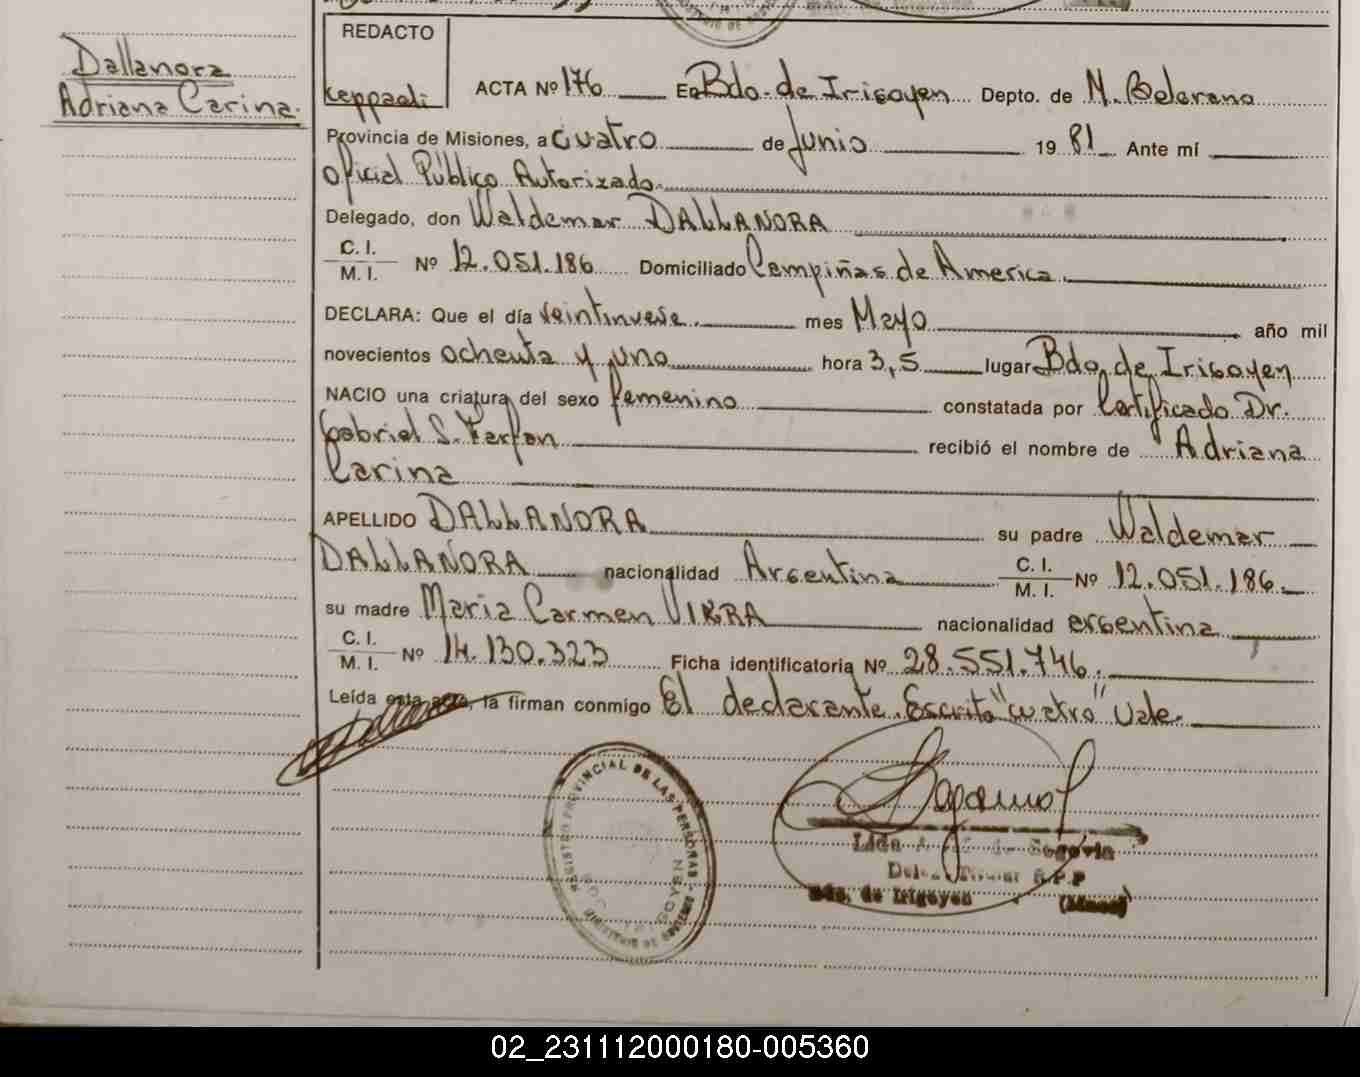 Dallanora
Adriana Carina.
REDACTO
Keppadi
ACTA Nº 176 En Bdo. de Irigoyen Depto. de M. Belgrano
Provincia de Misiones, a cuatro de Junio 19 81 Ante mí
Oficial Público Autorizado
Delegado, don Waldemar DALLANORA
C. I.
M. I. Nº 12.051.186 Domiciliado Campiñas de America
DECLARA: Que el día veintinueve mes Mayo año mil
novecientos ochenta y uno hora 3,5 lugar Bdo, de Irigoyen
NACIO una criatura del sexo femenino constatada por Certificado Dr.
Gabriel S. Farfan recibió el nombre de Adriana
Carina
APELLIDO DALLANORA su padre Waldemar
DALLANORA nacionalidad Argentina C. I.
M. I. Nº 12.051.186.
su madre Maria Carmen nacionalidad argentina
C. I.
M. I. Nº 14.130.323 Ficha identificatoria Nº 28.551.746.
Leída esta acta, la firman conmigo El declarante Escrito "cuatro" Vale.
REGISTRO PROVINCIAL DE LAS PERSONAS
Segovia
Bdo. de Irigoyen (Mnes)
02_231112000180-005360